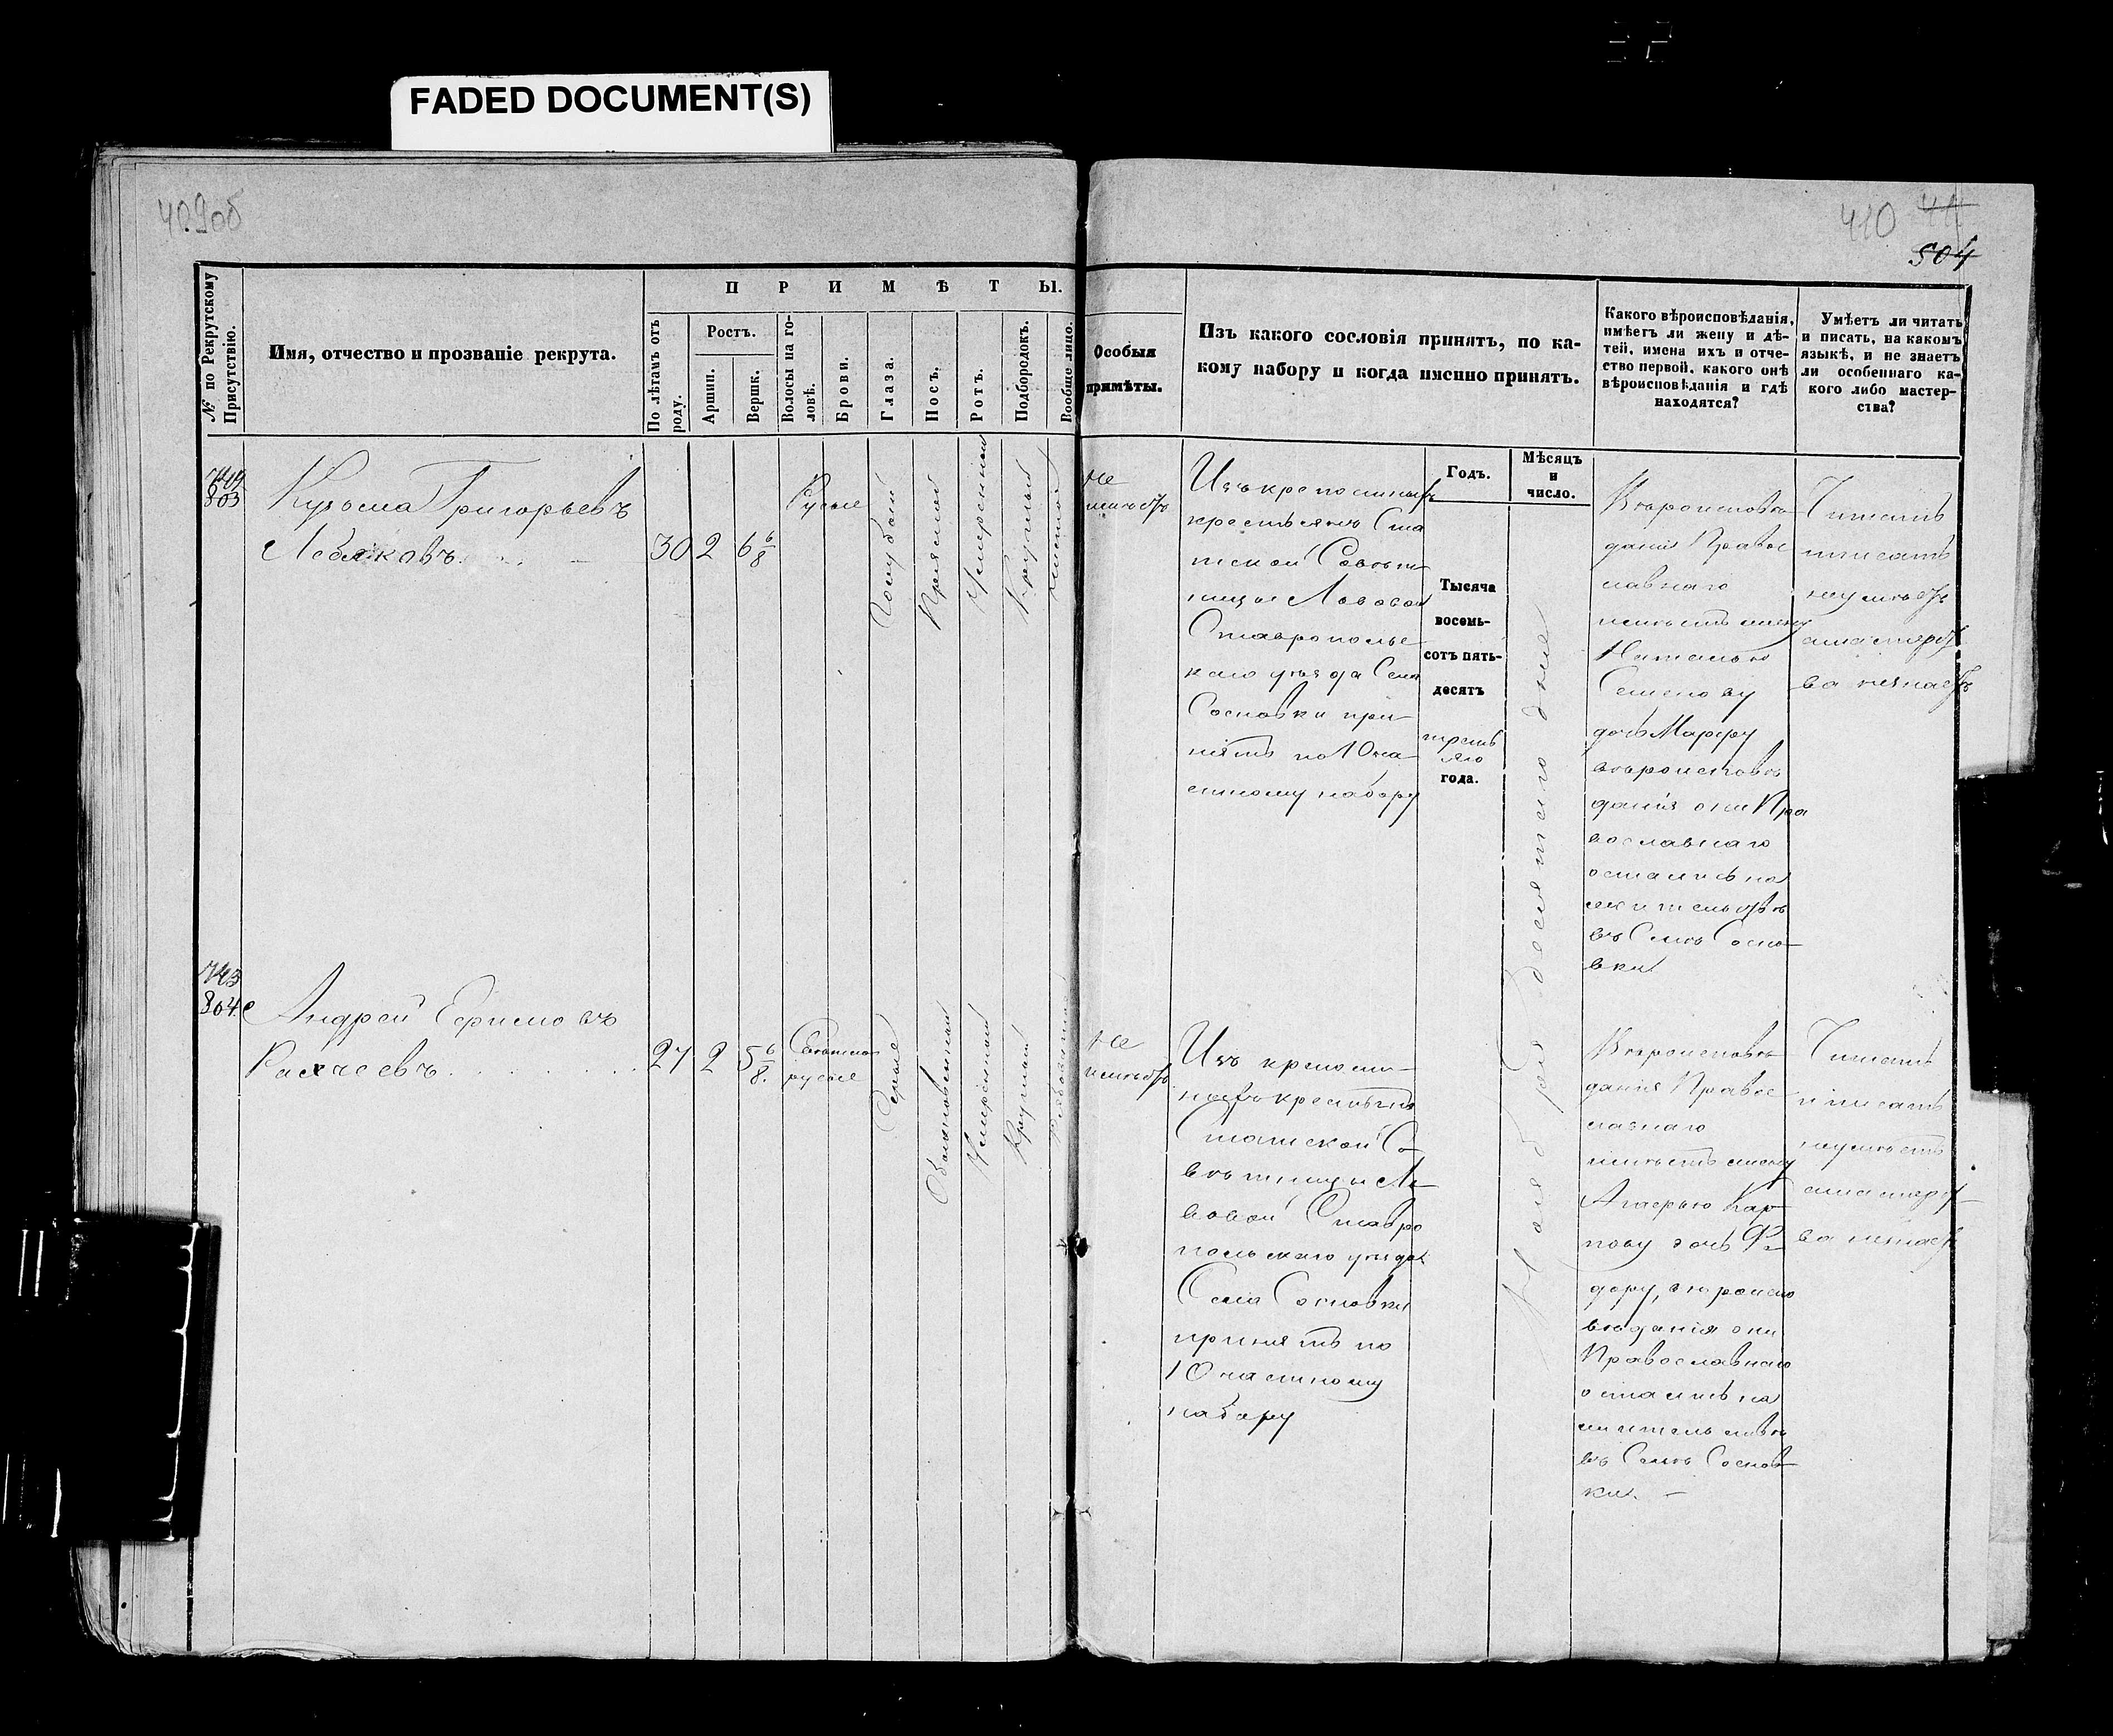 FADED DOCUMENT(S)
409об
410
504
№ по Рекрутскому
Присутствію.
Имя, отчество и прозваніе рекрута.
ПРИМѢТЫ.
По лѣтамъ отъ
роду.
Ростъ.
Аршин.
Вершк.
Волосы на го-
ловѣ.
Брови.
Глаза.
Носъ.
Ротъ.
Подбородокъ.
Вообще лицо.
Особыя
примѣты.
Изъ какого сословія принятъ, по ка-
кому набору и когда именно принятъ.
Какого вѣроисповѣданія,
имѣетъ ли жену и дѣ-
тей, имена ихъ и отче-
ство первой, какого онѣ
вѣроисповѣданія и гдѣ
находятся?
Умѣетъ ли читать
и писать, на какомъ
языкѣ, и не знаетъ
ли особеннаго ка-
кого либо мастер-
ства?
803
Кузьма Григорьевъ
30 2 6 6/8
Русые
Голубой
Прямой
Умеренный
Круглый
чистое
не
имѣетъ
Изъ крепостныхъ
крестьянъ Ста
тской Совѣт
ницы Львовой
Ставрополь
скаго уѣзда Села
Сосновки при
нятъ по 10 ча
стному набору
Годъ.
Мѣсяцъ
и
число.
Тысяча
восемь-
сотъ пять-
десятъ
третьяго
года.
Ноября десятого дня
Вѣроисповѣ
данія Правос
лавнаго
имѣетъ жену
Наталью
Семенову
дочь Марфу
вѣроисповѣ
данія они Пра
вославнаго
остались на
жительствѣ
въ Селѣ Сосно
вки
Читать
писать
неумѣетъ
мастерст
ва незнаетъ
743
804
Андрей Ефимовъ
27 2 5 6/8.
Светло
русые
Серые
Обыкновенный
Умеренный
Круглый
не
имѣетъ
Изъ крепост
ныхъ крестьянъ
Статской Со
вѣтницы Ль
вовой Ставро
польскаго уѣзда
Села Сосновки
принятъ по
10 частному
набору
Вѣроисповѣ
данія Правос
лавнаго
имѣетъ жену
Агафью Кар
пову дочь Фе
дору, вѣроиспо
вѣданія они
Православнаго
остались на
жительствѣ
въ Селѣ Соснов
ки.
Читать
и писать
неумѣетъ
мастерст
ва незнаетъ